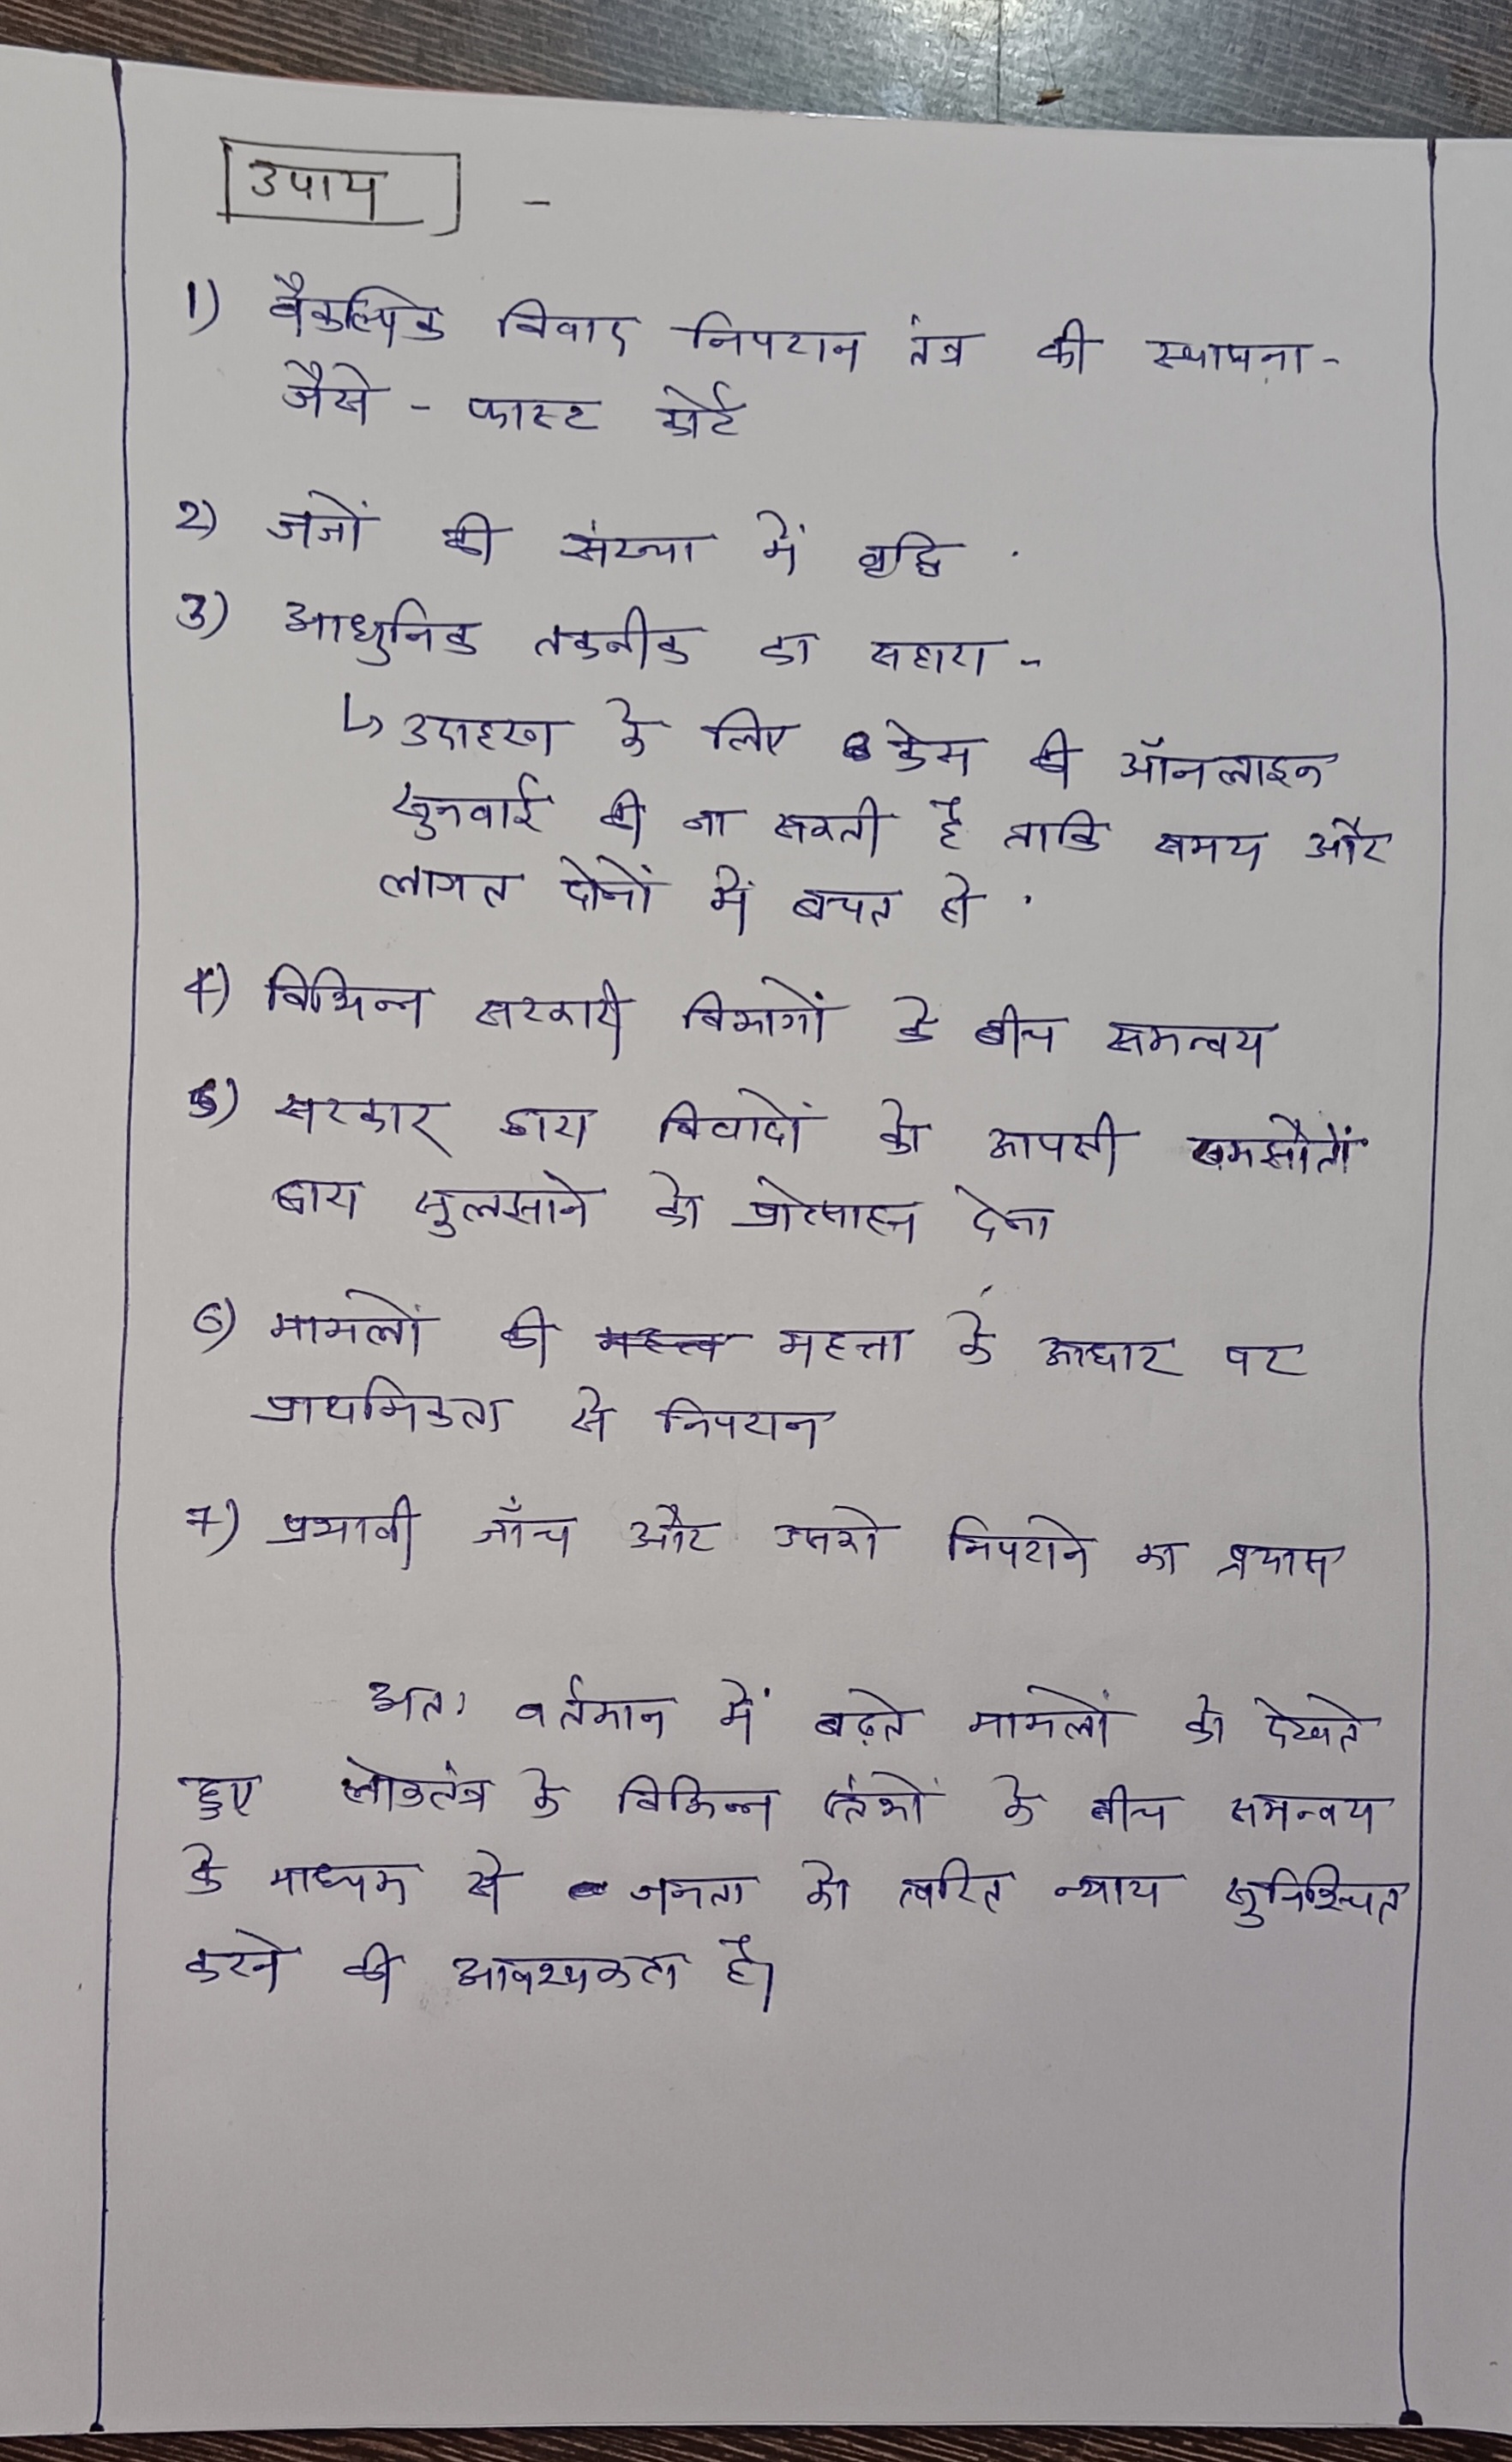 उपाय -
1) वैकल्पिक विवाद निपटान तंत्र की स्थापना -
जैसे - फास्ट कोर्ट
2) जजों की संख्या में वृद्धि .
3) आधुनिक तकनीक का सहारा -
↳ उदाहरण के लिए केस की ऑनलाइन
सुनवाई की जा सकती है ताकि समय और
लागत दोनों में बचत हो .
4) विभिन्न सरकारी विभागों के बीच समन्वय
5) सरकार द्वारा विवादों को आपसी समझौतों
द्वारा सुलझाने को प्रोत्साहन देना
6) मामलों की महत्ता के आधार पर
प्राथमिकता से निपटान
7) प्रभावी जाँच और उनको निपटाने का प्रयास
अतः वर्तमान में बढ़ते मामलों को देखते
हुए लोकतंत्र के विभिन्न के बीच समन्वय
के माध्यम से जनता को त्वरित न्याय सुनिश्चित
करने की आवश्यकता है।